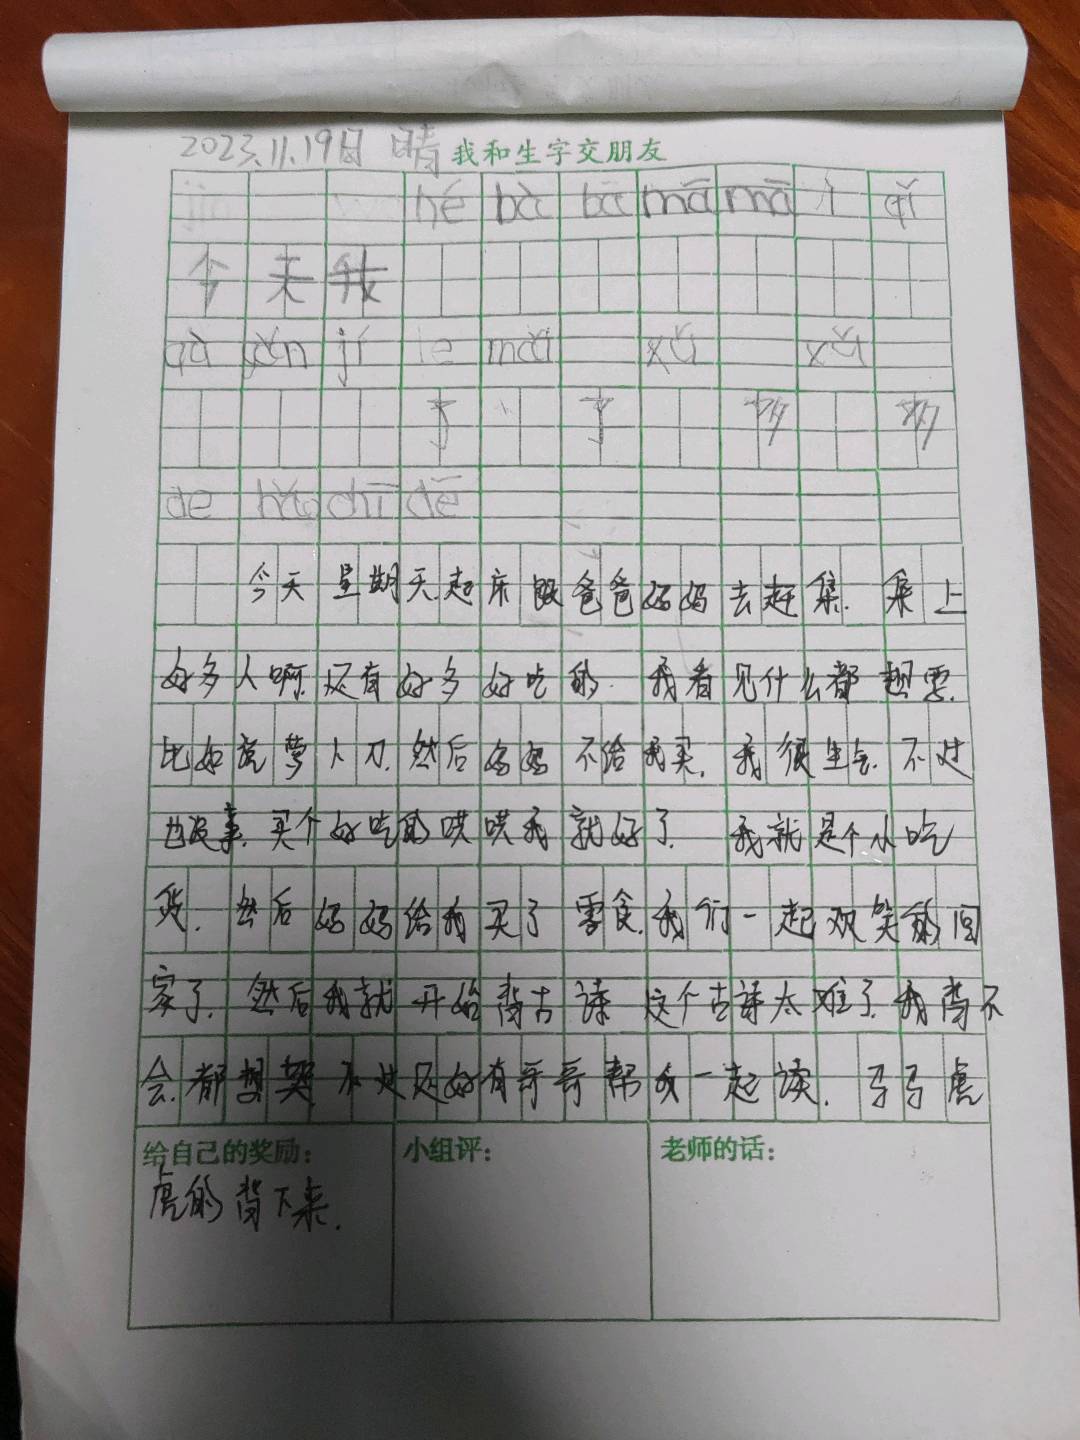 2023.11.19日 晴 我和生字交朋友
hé bà bā mā mā qǐ
今天我
qù gǎn jí le mǎi xǔ xǔ
了 了 多 多
de hǎo chī dē
今天星期天.起床跟爸爸妈妈去赶集.集上
好多人啊.还有好多好吃的.我看见什么都想要.
比如说萝卜刀.然后妈妈不给我买.我很生气.不过
也没事.买个好吃的哄哄我就好了.我就是个小吃
货.然后妈妈给我买了零食.我们一起欢笑的回
家了.然后我就开始背古诗 这个古诗太难了.我背不
会.都想哭.不过还好有哥哥帮我一起读.马马虎
给自己的奖励: 小组评: 老师的话:
虎的背下来.